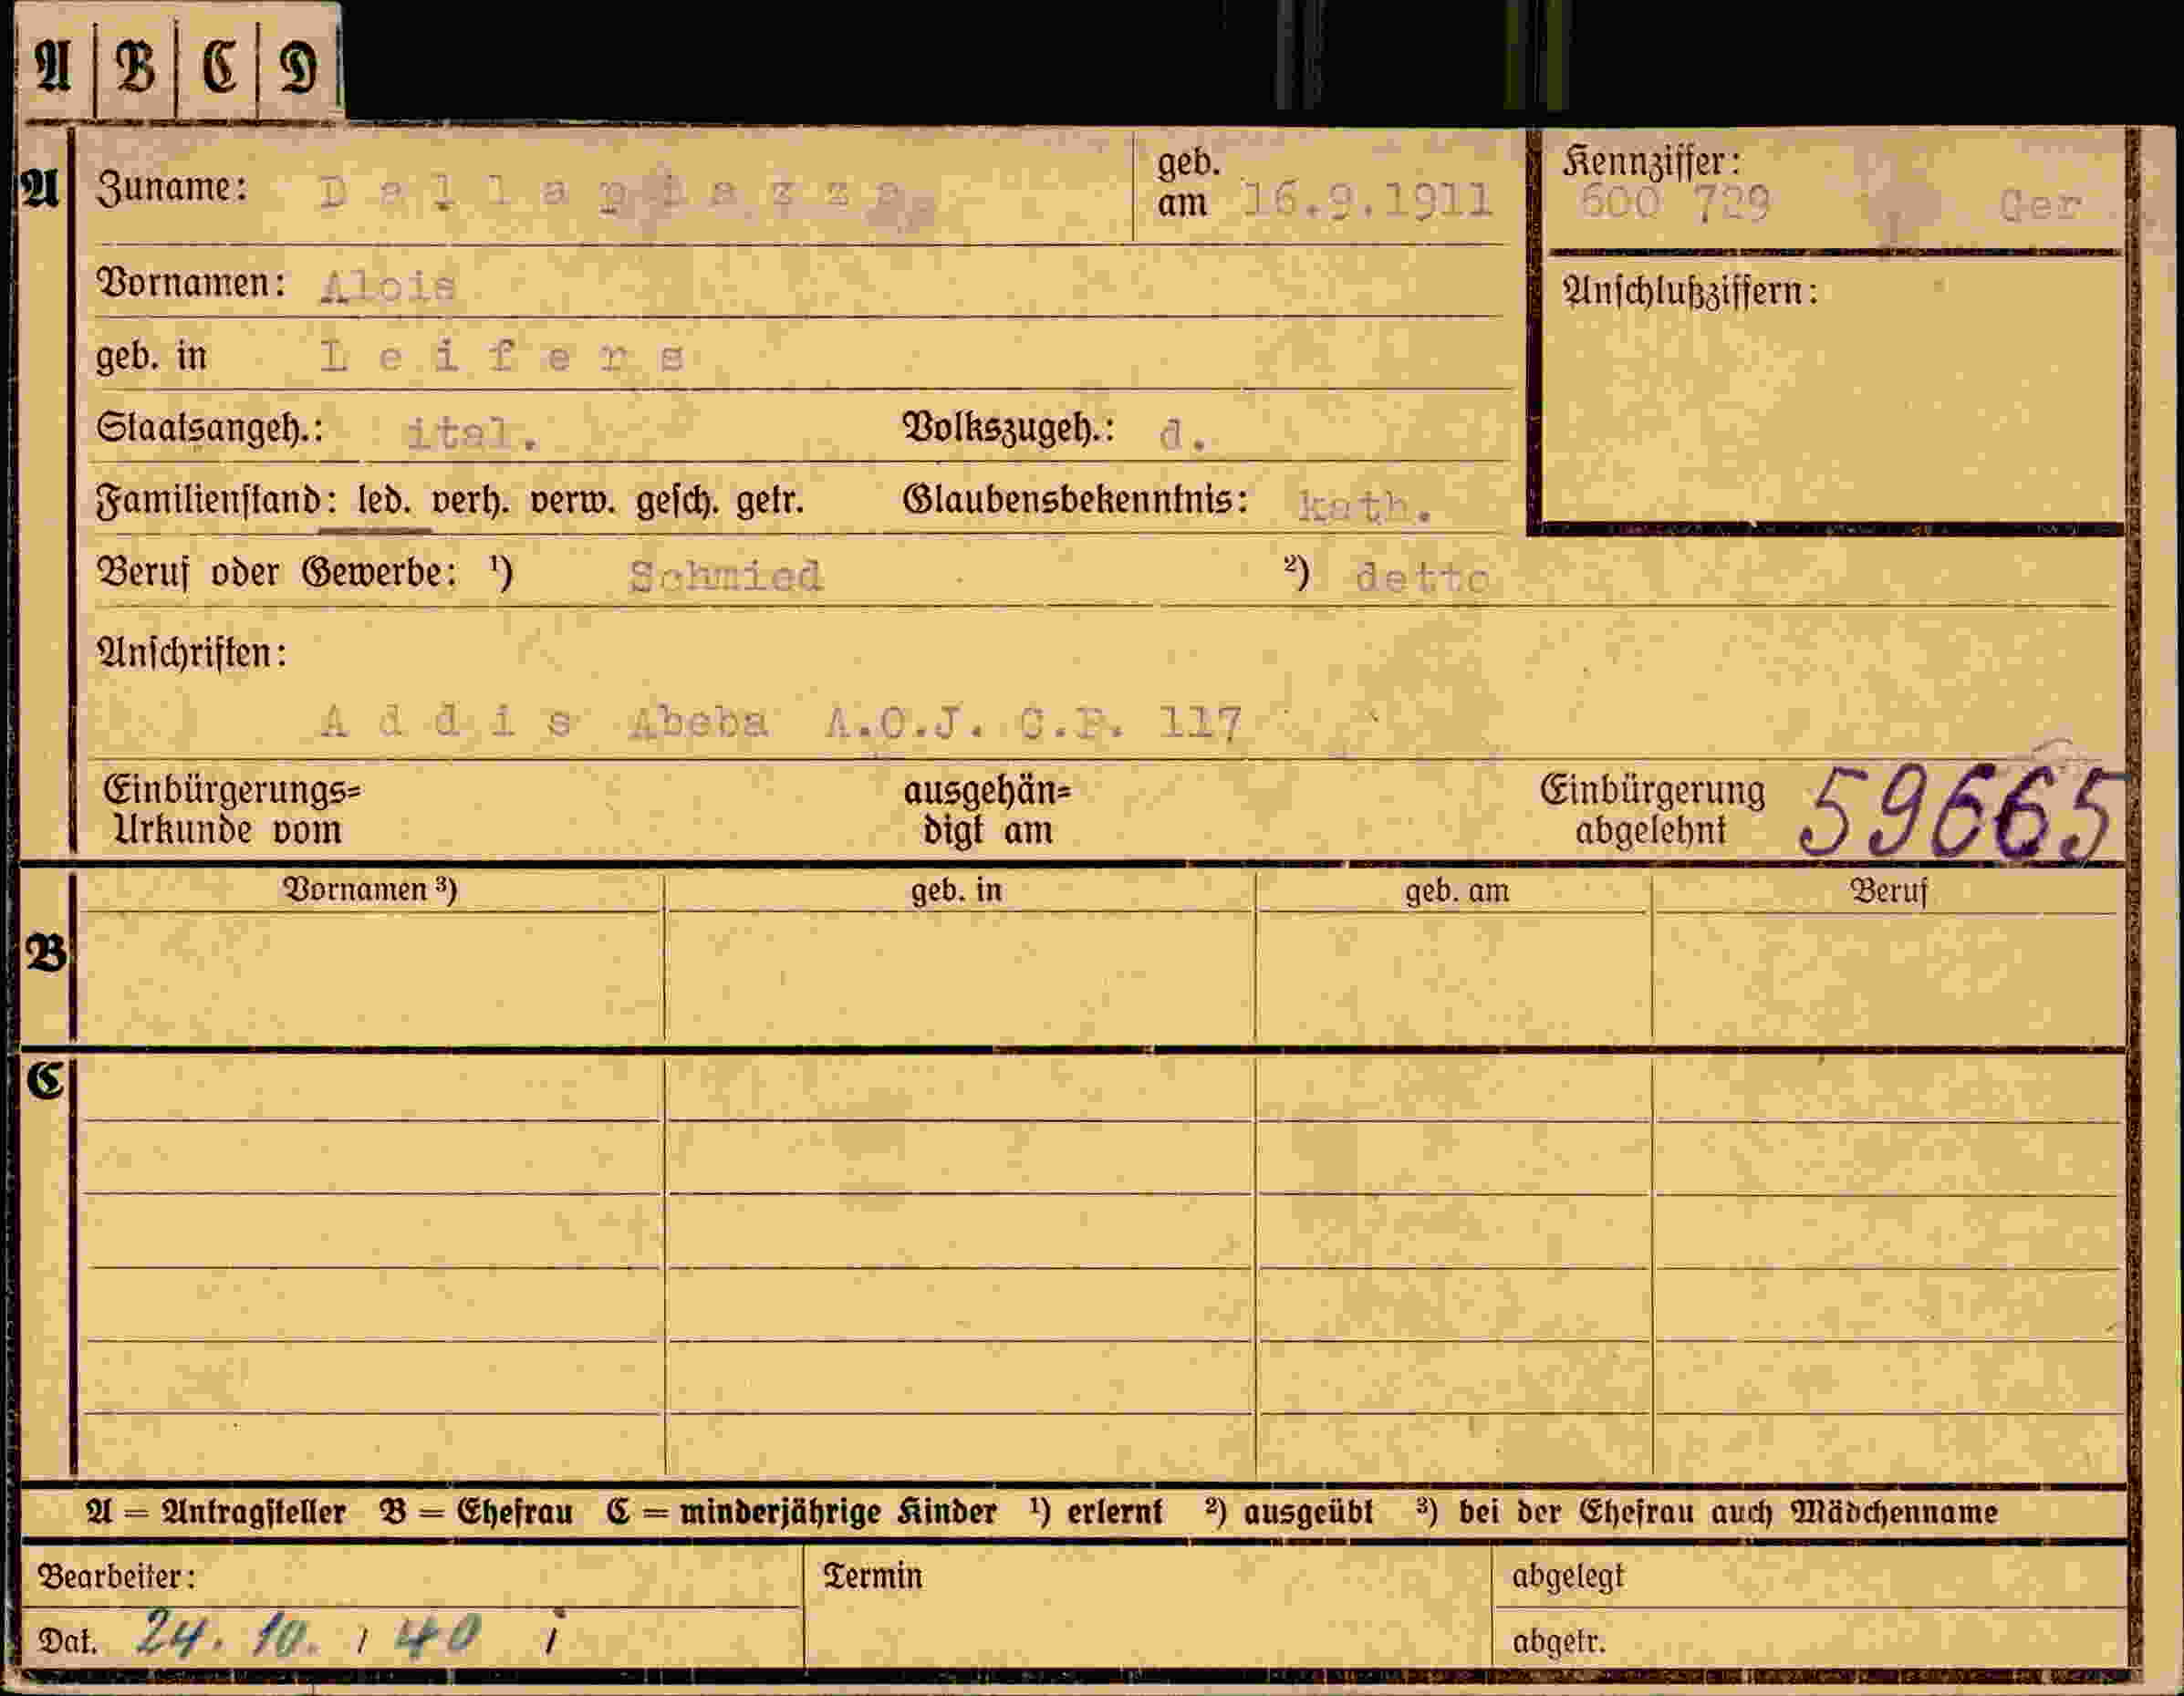 A B C D
A Zuname: Dellapiazza geb. am 16.9.1911
Kennziffer: 600 729 Ger
Vornamen: Alois
Anschlußziffern:
geb. in Leifers
Staatsangeh.: ital. Volkszugeh.: d.
Familienstand: led. verh. verw. gesch. getr. Glaubensbekenntnis: kath.
Beruf oder Gewerbe: ¹) Schmied ²) detto
Anschriften:
Addis Abeba A.O.J. C.P. 117
Einbürgerungs=
Urkunde vom
ausgehän=
digt am
Einbürgerung
abgelehnt
59665
Vornamen ³) geb. in geb. am Beruf
B
C
A = Antragsteller B = Ehefrau C = minderjährige Kinder ¹) erlernt ²) ausgeübt ³) bei der Ehefrau auch Mädchenname
Bearbeiter: Termin abgelegt
Dat. 24. 10. / 40 i abgetr.